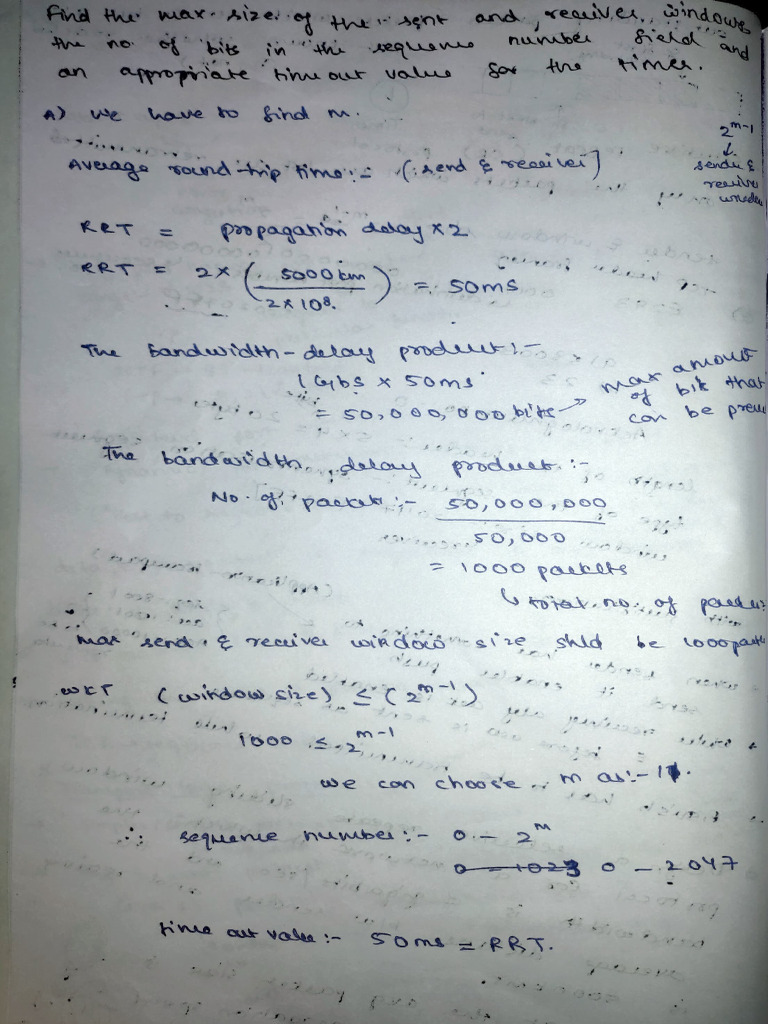 Find the max. size of the sent and receiver windows
the no. of bits in the sequence number field and
an appropriate time out value for the timer.
A) we have to find m.
2^m-1
↓
sender &
receiver
window
Average round-trip time:- (send & receiver)
RRT = propagation delay x 2
RRT = 2x (5000 km / 2x10^8.) = 50ms
The bandwidth-delay product:-
1 Gbs x 50ms
= 50,000,000 bits → max amount
of bit that
can be
The bandwidth delay product :-
No. of packet :- 50,000,000
50,000
= 1000 packets
↳ total no. of
max send & receiver window size shld be 1000
WKT (window size) ≤ (2^m-1)
1000 ≤ 2^m-1
we can choose m as:- 11.
∴ sequence number :- 0 - 2^m
0 - 1023 0 - 2047
time out value :- 50ms = RRT.